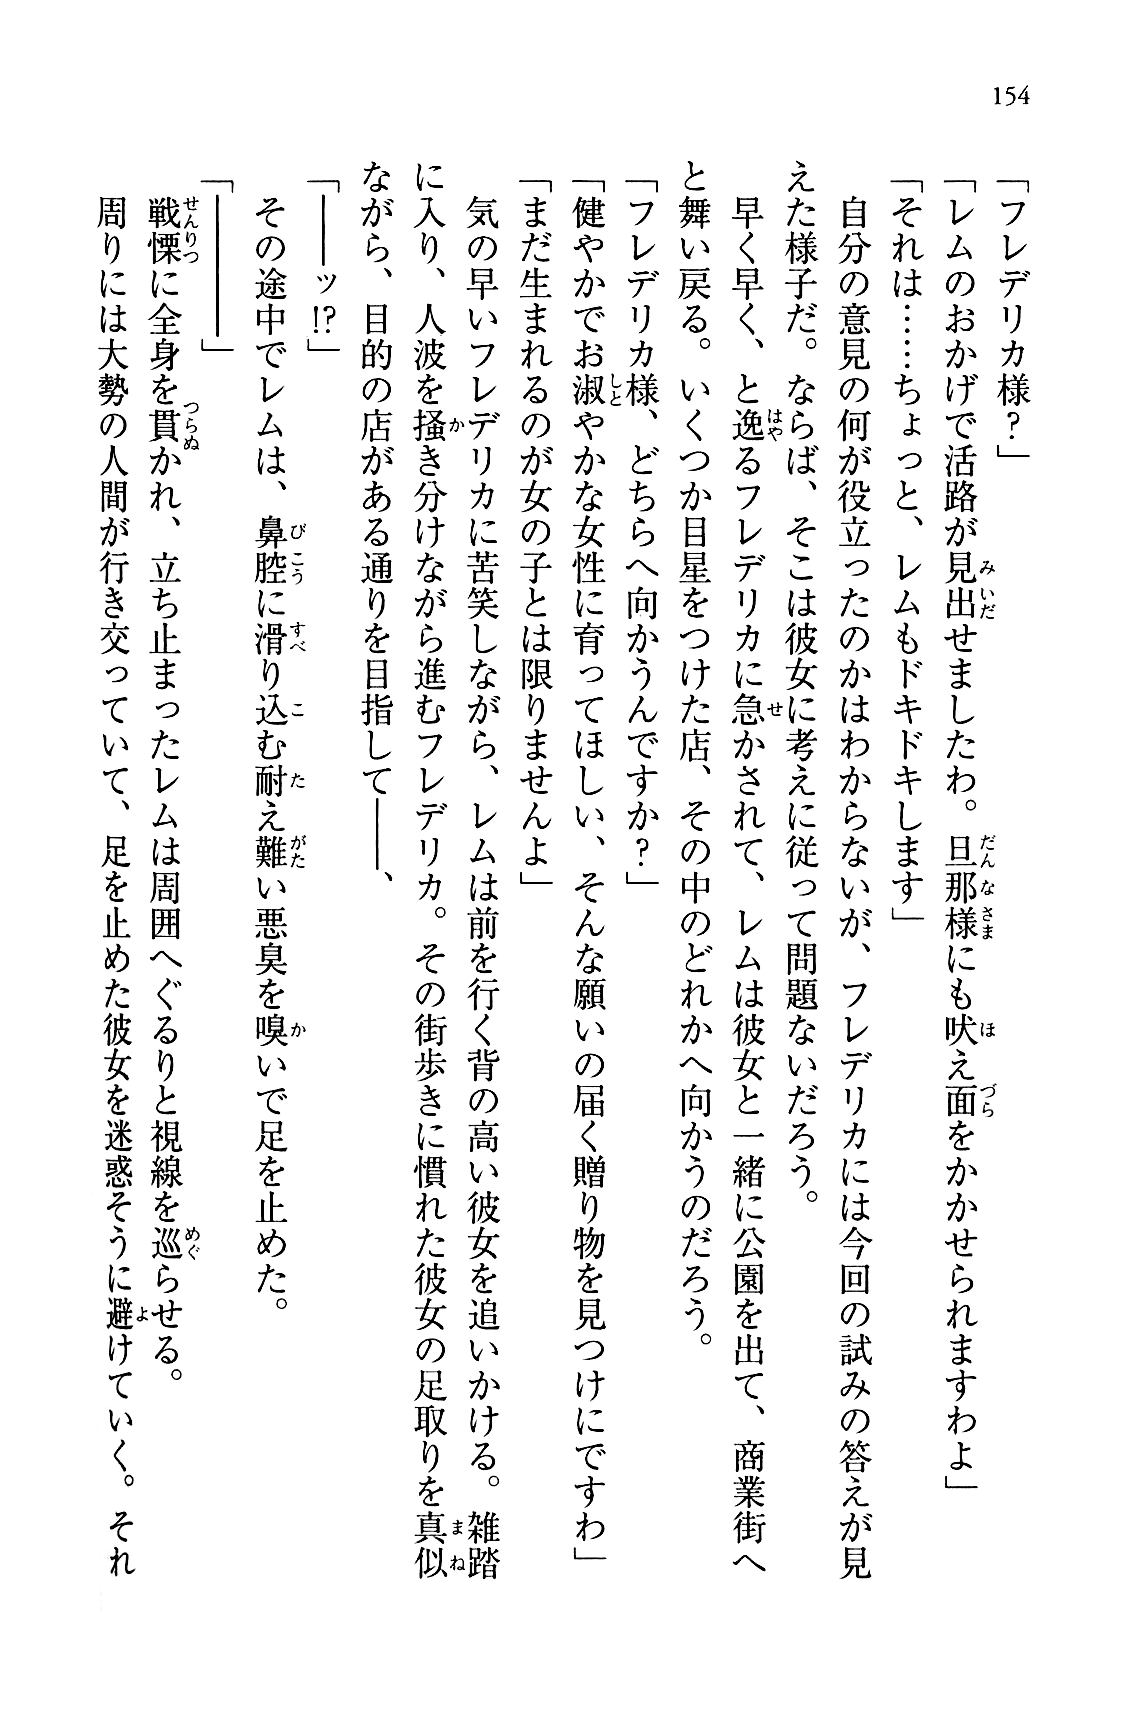 154
「フレデリカ様？」
「レムのおかげで活路が見出せましたわ。旦那様にも吠え面をかかせられますわよ」
「それは……ちょっと、レムもドキドキします」
自分の意見の何が役立ったのかはわからないが、フレデリカには今回の試みの答えが見
えた様子だ。ならば、そこは彼女に考えに従って問題ないだろう。
早く早く、と逸るフレデリカに急かされて、レムは彼女と一緒に公園を出て、商業街へ
と舞い戻る。いくつか目星をつけた店、その中のどれかへ向かうのだろう。
「フレデリカ様、どちらへ向かうんですか？」
「健やかでお淑やかな女性に育ってほしい、そんな願いの届く贈り物を見つけにですわ」
「まだ生まれるのが女の子とは限りませんよ」
気の早いフレデリカに苦笑しながら、レムは前を行く背の高い彼女を追いかける。雑踏
に入り、人波を掻き分けながら進むフレデリカ。その街歩きに慣れた彼女の足取りを真似
ながら、目的の店がある通りを目指して――、
「――ッ!?」
その途中でレムは、鼻腔に滑り込む耐え難い悪臭を嗅いで足を止めた。
「――――」
戦慄に全身を貫かれ、立ち止まったレムは周囲へぐるりと視線を巡らせる。
周りには大勢の人間が行き交っていて、足を止めた彼女を迷惑そうに避けていく。それ